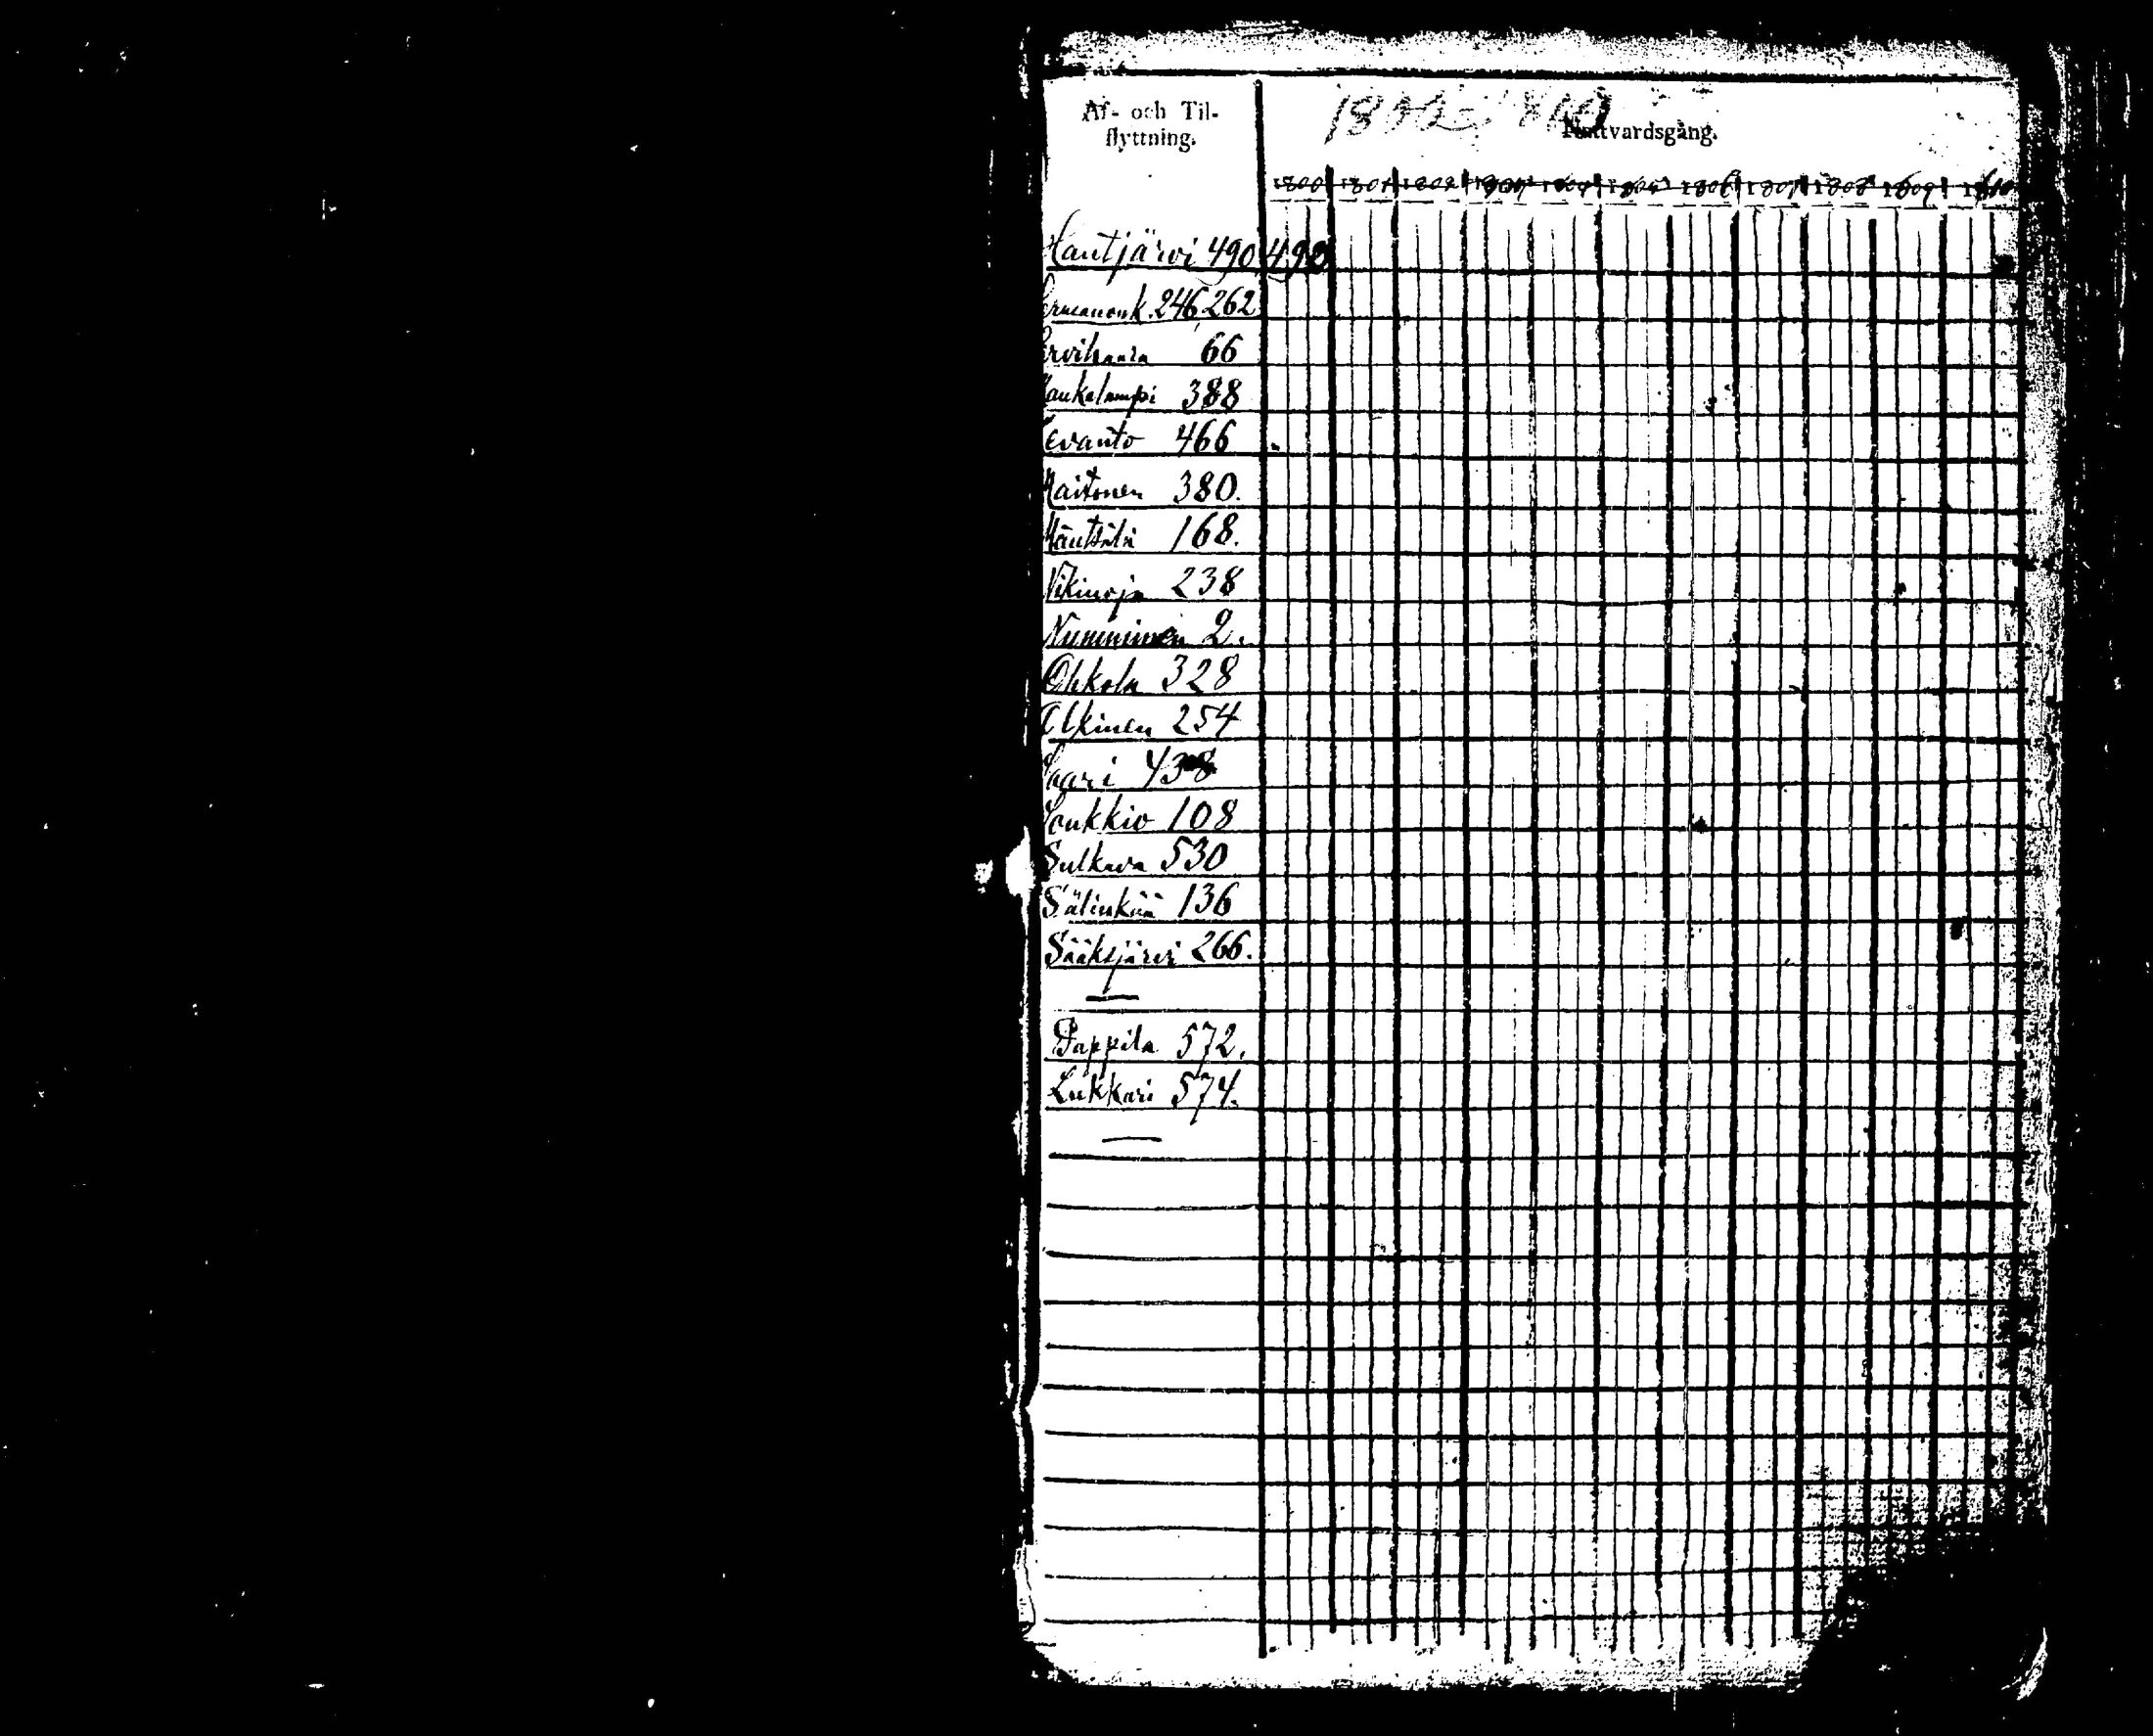 Af- och Til-
flyttning.
Nattvardsgång.
1800 1801 1802 1803 1804 1805 1806 1807 1808 1809 1810
Hautjärvi 490 490
ermanonk. 246 262
ervihaara 66
aukalampi 388
Levanto 466
Maitonen 380.
Mäntsälä 168.
Nikinoja 238
Numminen 2.
Ohkola 328
Olkinen 254
Saari 438
Soukkio 108
Sulkava 530
Sälinkää 136
Sääksjärvi 266.
Pappila 572.
Lukkari 574.